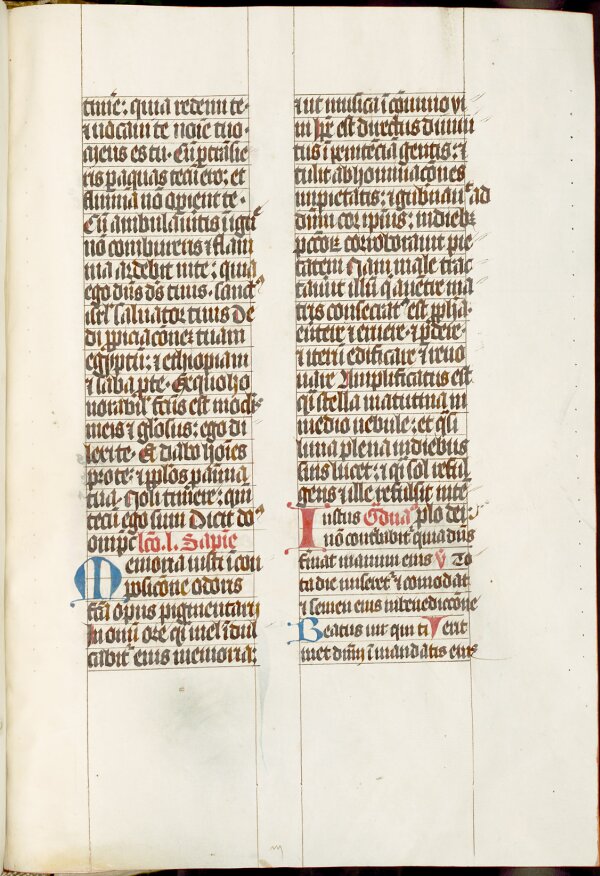 timē: quia redemi te·
⁊ uocaui te noīe tuo·
meus es tu· Cū ptrāsie
ris p aquas tecū ero: et
flumina nō opient te·
Cū ambulauītis ī igē
nō combureris ⁊ flam
ma ardebit in te: quia
ego dn̄s ds̄ tuus· sanctꝰ
isrl̄ saluator tuus De
di ppiciacōneꝫ tuam
egyptū: ⁊ ethiopiam
⁊ saba p te· Ex quo hō
norabil̄ fcūs est in oculꝭ
meis ⁊ gl̄osus: ego di
lexi te· Et dabo hoīes
pro te: ⁊ pplos p aīma
tua· Noli timere: qm̄
tecū ego sum Dicit dōꝰ
om̄ps Lcō. l. Sapie
Memoria iusti ī con
posicōne odoris
fc̄ā opus pigmentarij
In om̄i ore qī mel īdul
cabit̄ eius memoria:
⁊ ut musica ī cōuiuio vi
ni Ip̄e est directus diuini
tus ī penitēcia gentis: ⁊
tulit abhominacōnes
impietatis: ⁊ gubnauit ad
dīnm cor ip̄ius: in dieb₃
pccōꝝ corroborauit pie
tatem Nam male trac
tauūt illū q a uētre ma
tris consecrat̄ est ppħa·
euertere ⁊ eruere· ⁊ pdere·
⁊ iterū edificare ⁊ reno
uare Amplificatus est
qī stella matutina in
medio nebule: et qīi
luna plena in diebus
suis lucet: ⁊ qī sol reful
gens ⁊ ille refulsit in te
Iustus Gdua plo dei·
nō cōturbabit̄ quia dn̄s
firmat manum eius v̄ To
ta die miseret̄ ⁊ comodat
⁊ semen eius in benediccōne
Beatus uir qui ti Verū
met dīnm ī mandatis eius